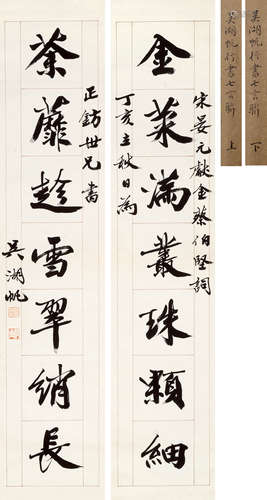 金菊滿叢珠顆細
宋晏元獻金蔡伯堅詞
丁亥立秋日為
荼蘼趁雪翠綃長
正鈁世兄書
吳湖帆
吳湖帆行書七言聯 下
吳湖帆行書七言聯 上